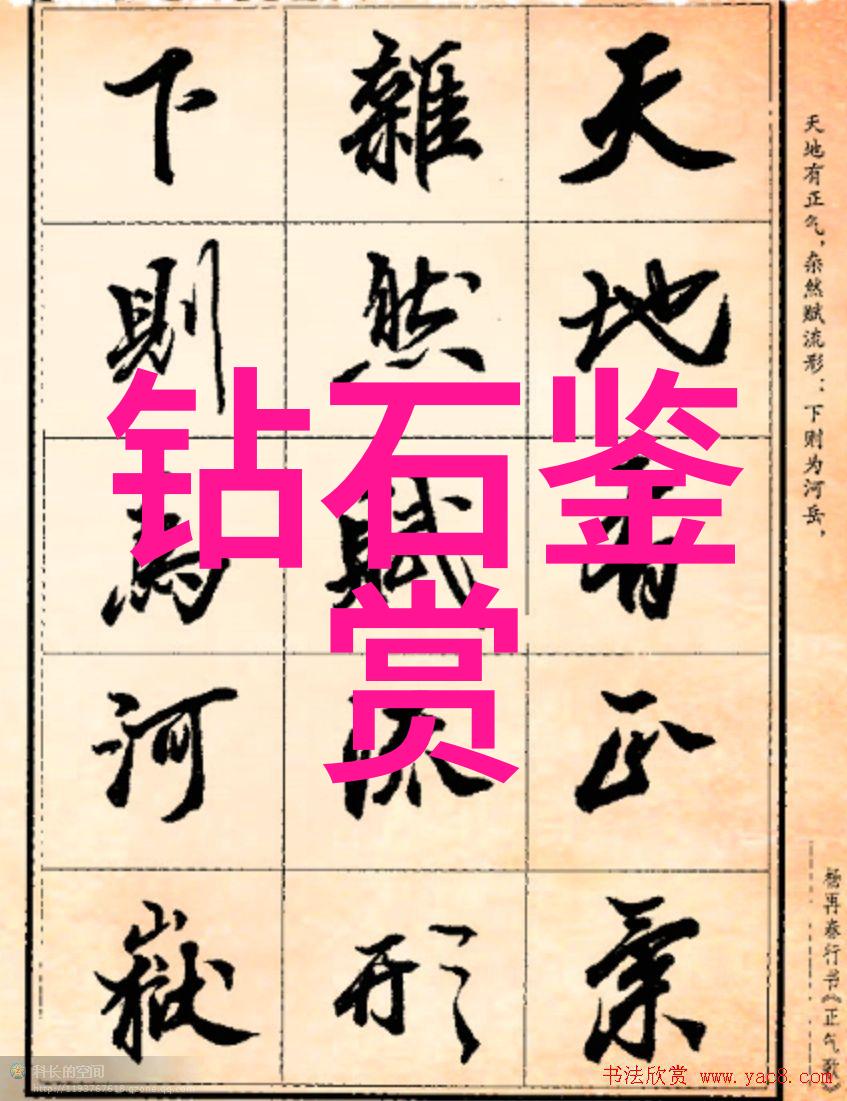 天地有正氣
雜然賦流形
下則為河嶽
天地有正气，杂然赋流形：下则为河岳，
杨再春行书《正气歌》
钻石鉴
赏
科长的空间
http://1193767618.qzone.qq.com
书法欣赏 www.yac8.com